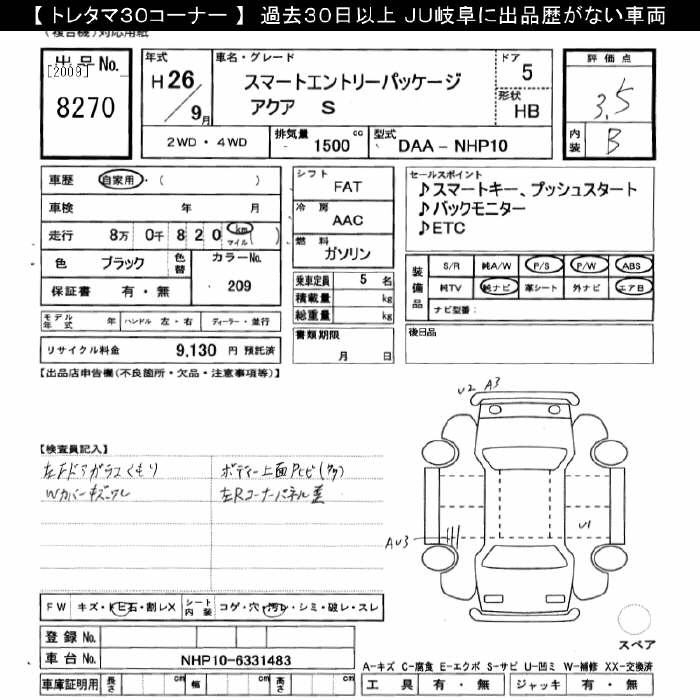 【 トレタマ30コーナー 】 過去30日以上 JU岐阜に出品歴がない車両
(複合機)対応用紙
出品No.
[2009]
8270
年式
H 26 / 9 月
車名・グレード
スマートエントリーパッケージ
アクア S
ドア
5
形状
HB
評価点
3.5
内装
B
2WD・4WD
排気量 1500 cc
型式 DAA-NHP10
車歴 自家用・( )
車検 年 月
走行 8万 0千 8 2 0 km マイル ( )
色 ブラック 色替
カラーNo.
209
保証書 有・無
モデル年式 年 ハンドル 左・右 ディーラー・並行
リサイクル料金 9,130 円 預託済
シフト
FAT
冷房
AAC
燃料
ガソリン
乗車定員 5 名
積載量 kg
総重量 kg
書類期限
月 日
セールスポイント
♪スマートキー、プッシュスタート
♪バックモニター
♪ETC
装備品
S/R 純A/W P/S P/W ABS
純TV 純ナビ 革シート 外ナビ エアB
ナビ型番:
後日品
【出品店申告欄(不良箇所・欠品・注意事項等)】
【検査員記入】
左Fドアガラスくもり
Wカバーキズ・ワレ
左Rコーナーパネル歪
U2 A3
AU3
U1
FW キズ・トビ石・割レX
シート内装 コゲ・穴・汚レ・シミ・破レ・スレ
スペア
登録No.
車台No. NHP10-6331483
車庫証明用 長さ cm 幅 cm 高さ cm
A-キズ C-腐食 E-エクボ S-サビ U-凹ミ W-補修 XX-交換済
工具 有・無 ジャッキ 有・無